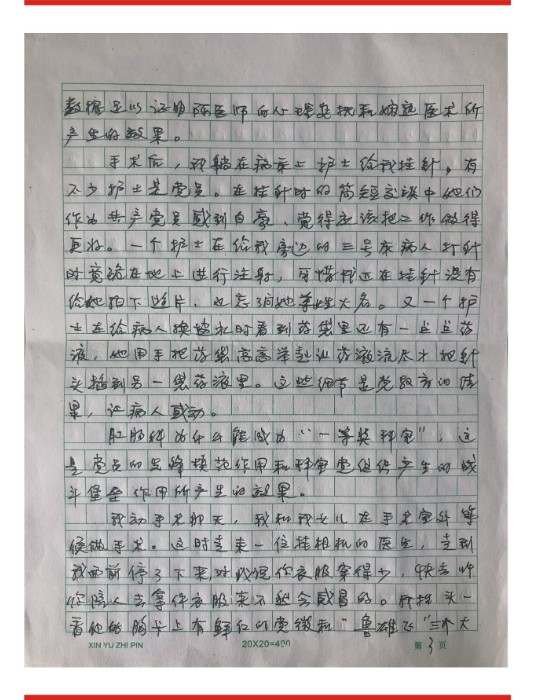 数结足以证明陈医师的心理安抚和娴熟医术所
产生的效果。
手术后，我躺在病床上护士给我挂针。有
不少护士是党员。在挂针时的简短交谈中她们
作为共产党员感到自豪，觉得应该把工作做得
更好。一个护士在给我旁边的三号床病人打针
时竟跪在地上进行注射，可惜我还在挂针没有
给她拍下照片，也忘了问她尊姓大名。又一个护
士在给病人换盐水时看到药袋里还有一点点药
液，她用手把药袋高高举起让药液流尽才把针
头插到另一袋药液里。这些细节是党教育的成
果，让病人感动。
肛肠科为什么能成为“一等奖科室”，这
是党员的先锋模范作用和科室党组织产生的战
斗堡垒作用所产生的效果。
我动手术那天，我和我女儿在手术室外等
候做手术。这时走来一位挂相机的医生，走到
我面前停了下来对我说你衣服穿得少，快去叫
你陪人去拿件衣服来不然会感冒的。我抬头一
看他的胸卡上有鲜红的党徽和“鲁雄飞”三个大
XIN YU ZHI PIN 20X20=400 第 3 页